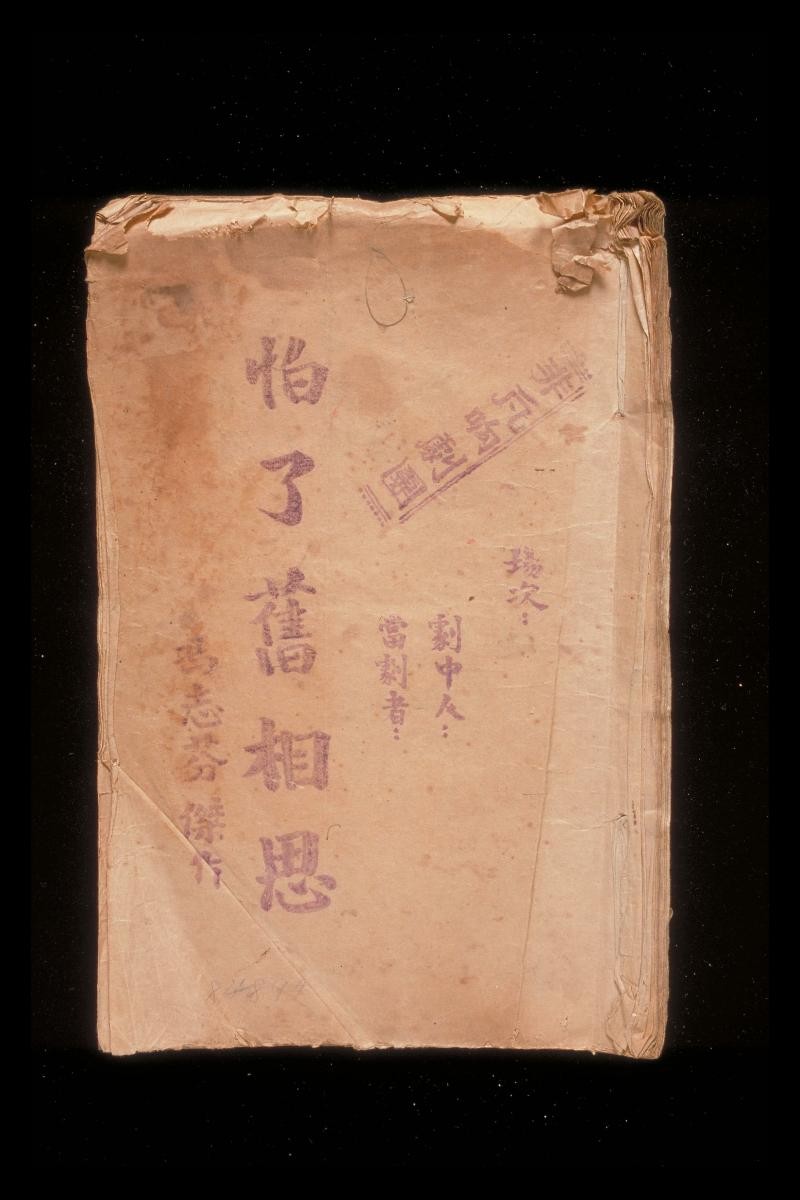 非凡响劇團
場次：
劇中人：
當劇者：
怕了舊相思
馮志芬傑作